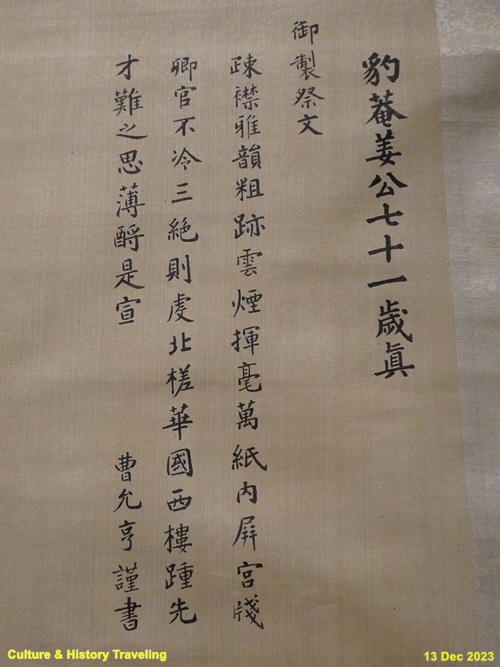 豹菴姜公七十一歲眞
御製祭文
疎襟雅韻粗跡雲煙揮毫萬紙內屛宮牋
卿官不冷三絶則虔北槎華國西樓踵先
才難之思薄酹是宣 曹允亨謹書
Culture & History Traveling
13 Dec 2023